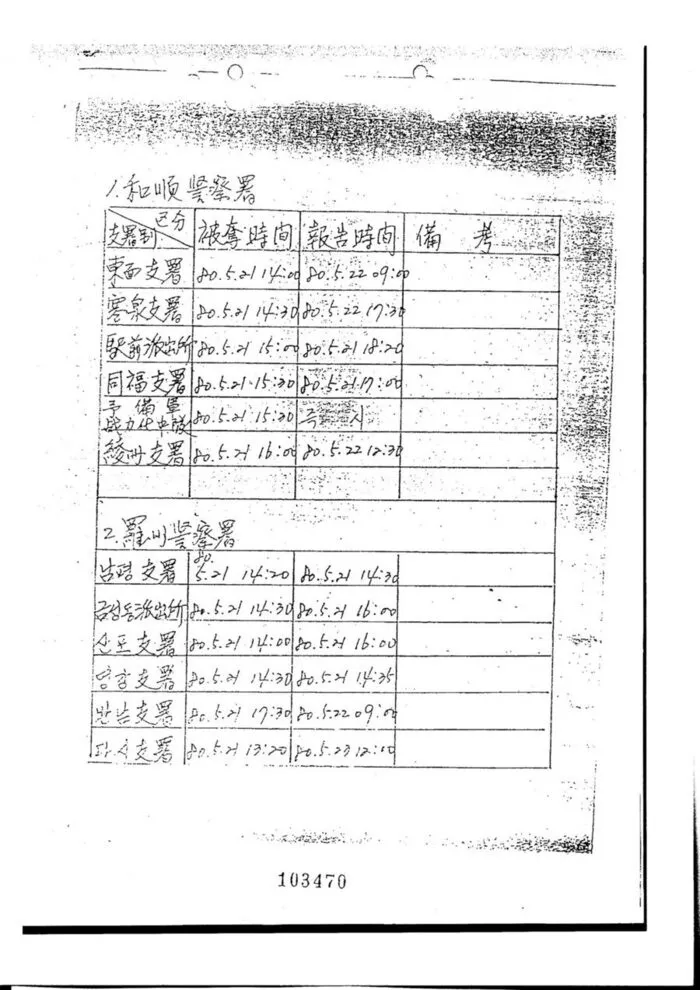 1. 和順警察署
区分
支署別 被奪時間 報告時間 備 考
東面支署 80.5.21 14:00 80.5.22 09:00
寒泉支署 80.5.21 14:30 80.5.22 17:30
駅前派出所 80.5.21 15:00 80.5.21 18:20
同福支署 80.5.21.15:30 80.5.21.17:00
予備軍
战力化中隊 80.5.21 15:30 즉 시
綾州支署 80.5.21 16:00 80.5.22 12:30
2. 羅州警察署
남평支署 80.5.21 14:20 80.5.21 14:30
금성동派出所 80.5.21 14:30 80.5.21 16:00
산포支署 80.5.21 14:00 80.5.21 16:00
영강支署 80.5.21 14:30 80.5.21 14:35
반남支署 80.5.21 17:30 80.5.22 09:00
다시支署 80.5.21 13:20 80.5.23 12:10
103470